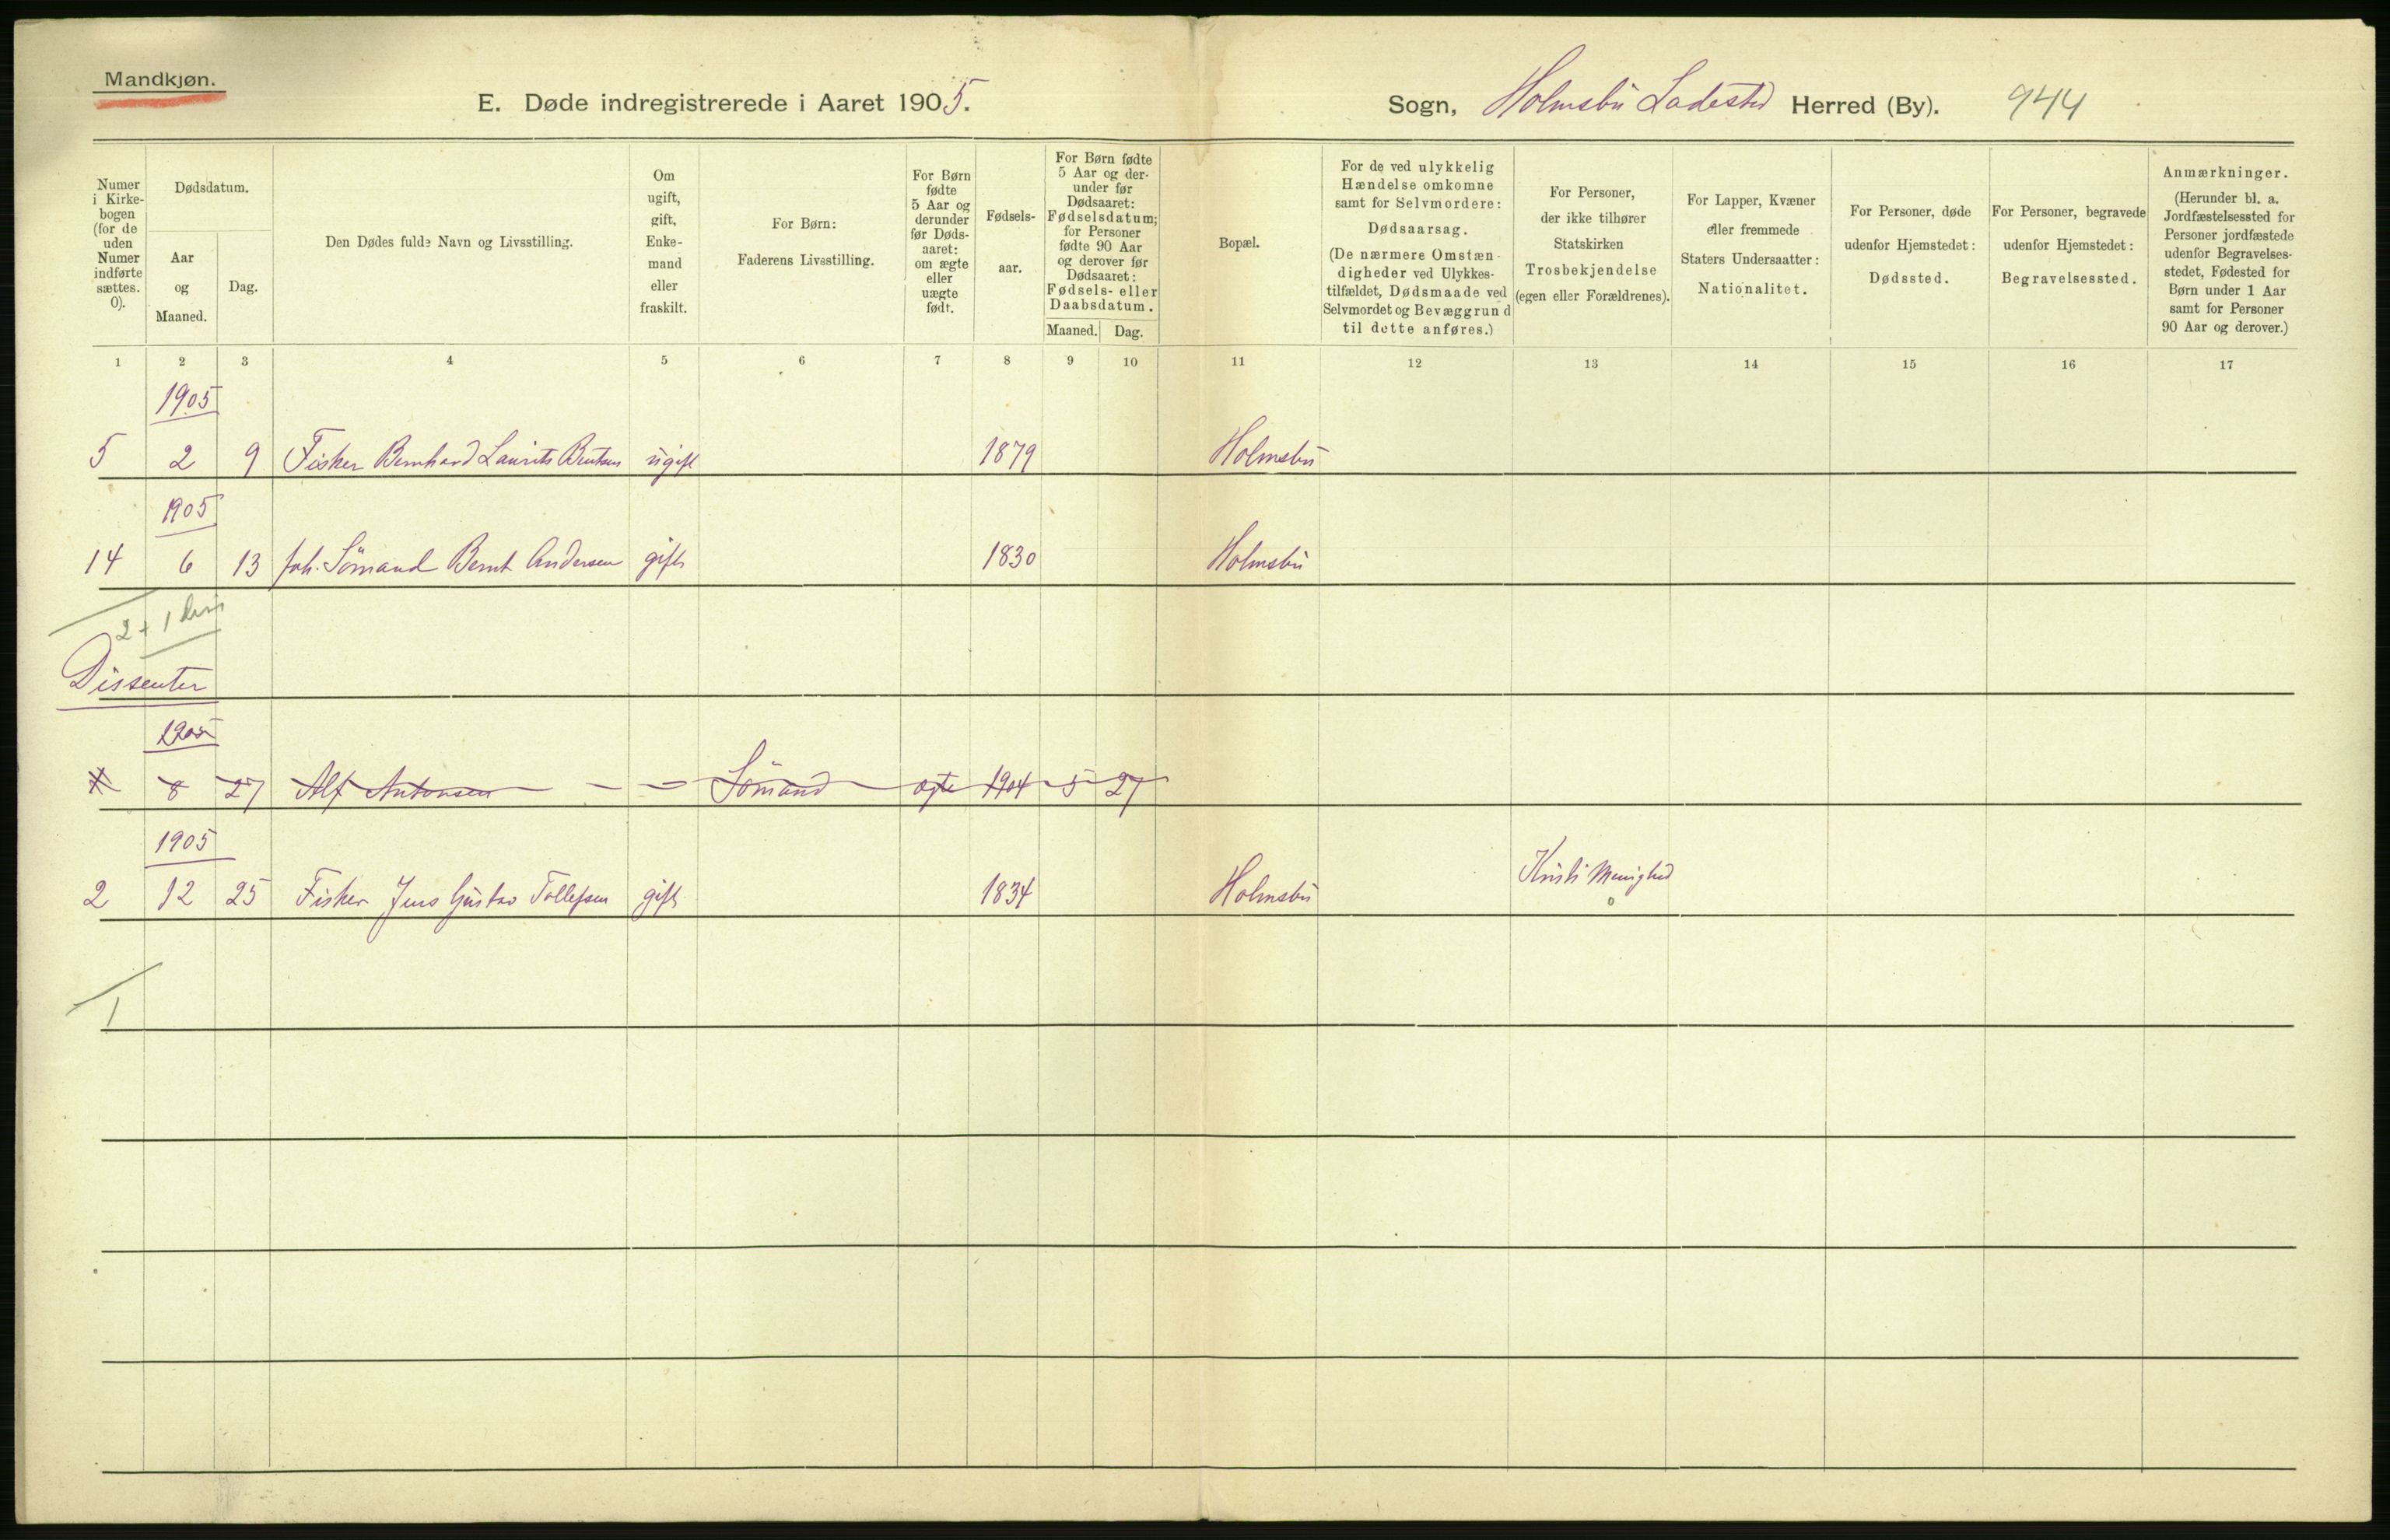 Mandkjøn.
E. Døde indregistrerede i Aaret 1905.
Sogn, Holmsbu Ladested Herred (By). 944
Numer
i Kirke-
bogen
(for de
uden
Numer
indførte
sættes.
0).
Dødsdatum.
Aar
og
Maaned.
Dag.
Den Dødes fulde Navn og Livsstilling.
Om
ugift,
gift,
Enke-
mand
eller
fraskilt.
For Børn:
Faderens Livsstilling.
For Børn
fødte
5 Aar og
derunder
før Døds-
aaret:
om ægte
eller
uægte
født.
Fødsels-
aar.
For Børn fødte
5 Aar og der-
under før
Dødsaaret:
Fødselsdatum;
for Personer
fødte 90 Aar
og derover før
Dødsaaret:
Fødsels- eller
Daabsdatum.
Maaned. Dag.
Bopæl.
For de ved ulykkelig
Hændelse omkomne
samt for Selvmordere:
Dødsaarsag.
(De nærmere Omstæn-
digheder ved Ulykkes-
tilfældet, Dødsmaade ved
Selvmordet og Bevæggrund
til dette anføres.)
For Personer,
der ikke tilhører
Statskirken
Trosbekjendelse
(egen eller Forældrenes).
For Lapper, Kvæner
eller fremmede
Staters Undersaatter:
Nationalitet.
For Personer, døde
udenfor Hjemstedet:
Dødssted.
For Personer, begravede
udenfor Hjemstedet:
Begravelsessted.
Anmærkninger.
(Herunder bl. a.
Jordfæstelsessted for
Personer jordfæstede
udenfor Begravelses-
stedet, Fødested for
Børn under 1 Aar
samt for Personer
90 Aar og derover.)
1 2 3 4 5 6 7 8 9 10 11 12 13 14 15 16 17
1905
5 2 9 Fisker Bernhard Laurits Berntsen ugift 1879 Holmsbu
1905
14 6 13 Sömand Bernt Andersen gift 1830 Holmsbu
2 + 1
Dissenter
1905
8 27 Alf Antonsen - - Sömand ægte 1904 5 27
1905
2 12 25 Fisker Jens Gustav Tollefsen gift 1834 Holmsbu Kristi Menighed
1